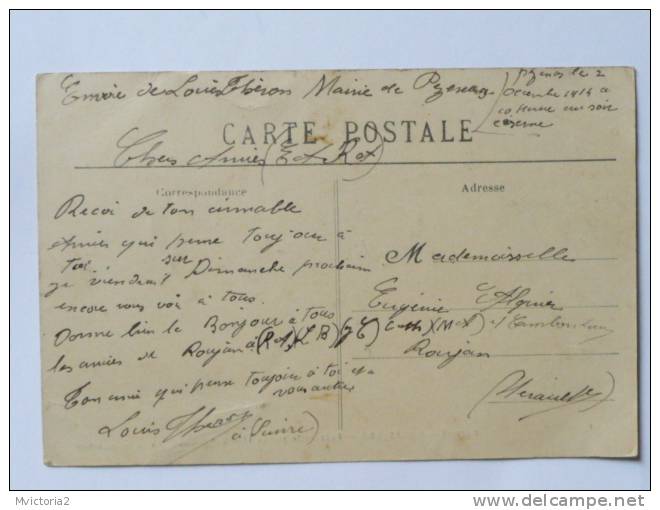 Envoie de Louis Théron Mairie de Pezenas
Pezenas le 2
Decembre 1914 a
10 Heure du soir
caserne
CARTE POSTALE
Chers Amies (E A R X)
Correspondance
Adresse
Recoi de ton aimable
Amies qui pense toujour à
toi
je viendrai sur Dimanche prochain
encore vous voir à tous.
Donne bien le Bonjour à tous
les amies de Roujan à (R A) (L B) (J C) (M A)
Ton ami qui pense toujour à toi
vous autre
Louis Theron
à (Suivre)
Mademoiselle
Eugénie Alquier
Roujan
(Herault)
Mvictoria2
www.delcampe.net